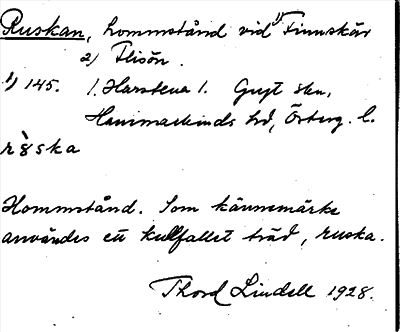 Ruskan, hommstånd vid 1) Finnskär
2) Flisön.
1) 145. 1. Harstena 1. Gryt skn,
Hammarkinds hd, Österg. l.
rùska
Hommstånd. Som kännemärke
användes ett kullfallet träd, ruska.
Thord Lindell 1928.